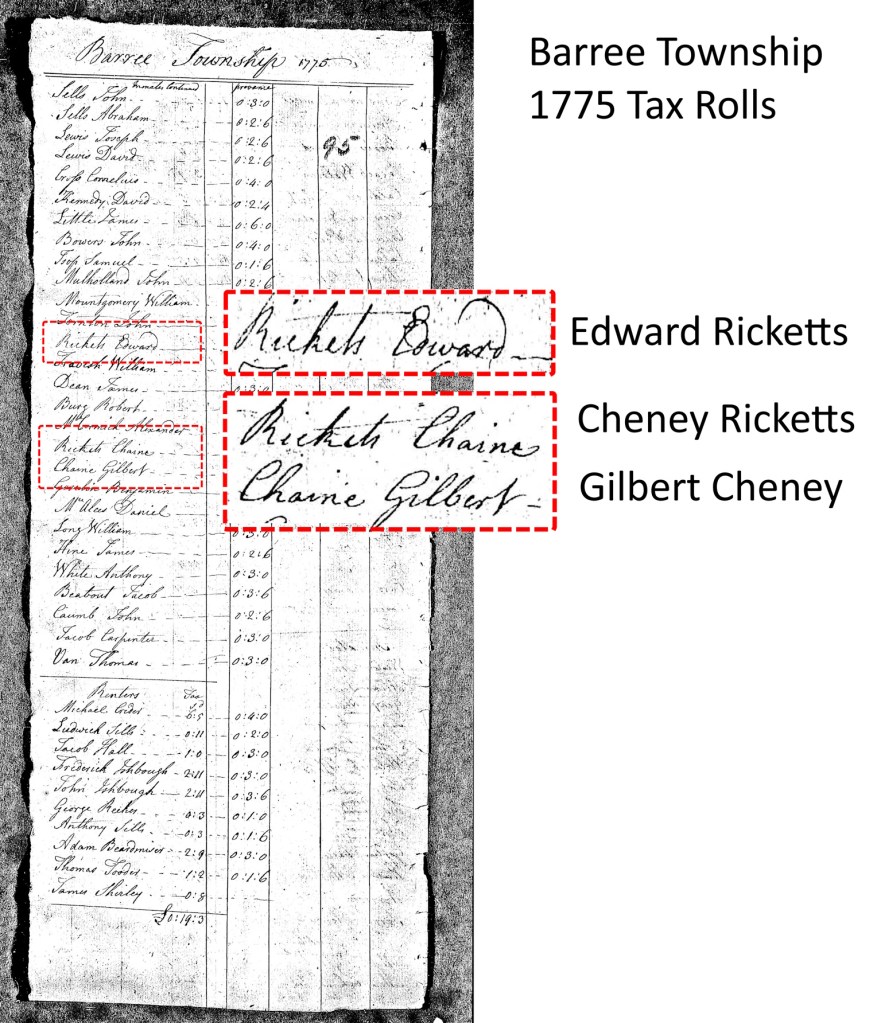 Barree Township 1775
Barree Township
1775 Tax Rolls
Inmates Continued province
Sells John 0:3:0
Sells Abraham 0:2:6
Lewis Joseph 0:2:6
95
Lewis David 0:2:6
Cross Cornelius 0:4:0
Kennedy David 0:2:4
Little James 0:6:0
Bowers John 0:4:0
Toop Samuel 0:1:6
Mulholland John 0:2:6
Mountgomery William
Tornton John
Rickets Edward
Travish William
Dean James 0:3:0
Burg Robert
McCormick Alexander
Rickets Chaine
Chaine Gilbert
Benjamin
Daniel
Long William 0:3:0
Hine James 0:2:6
White Anthony 0:3:0
Beabout Jacob 0:3:6
Caumb John 0:2:6
Jacob Carpenter 0:3:0
Van Thomas 0:3:0
Rickets Edward
Edward Ricketts
Rickets Chaine
Cheney Ricketts
Chaine Gilbert
Gilbert Cheney
Renters Tax
Michael Crider 6:5 0:4:0
Ludwick Sills 0:11 0:2:0
Jacob Hall 1:0 0:3:0
Frederick Ishbough 2:11 0:3:0
John Ishbough 2:11 0:3:6
George Reeher 0:3 0:1:0
Anthony Sills 0:3 0:1:6
Adam Beardmiser 2:9 0:3:0
Thomas Tooder 1:2 0:1:6
James Shirley 0:8
£0:19:3